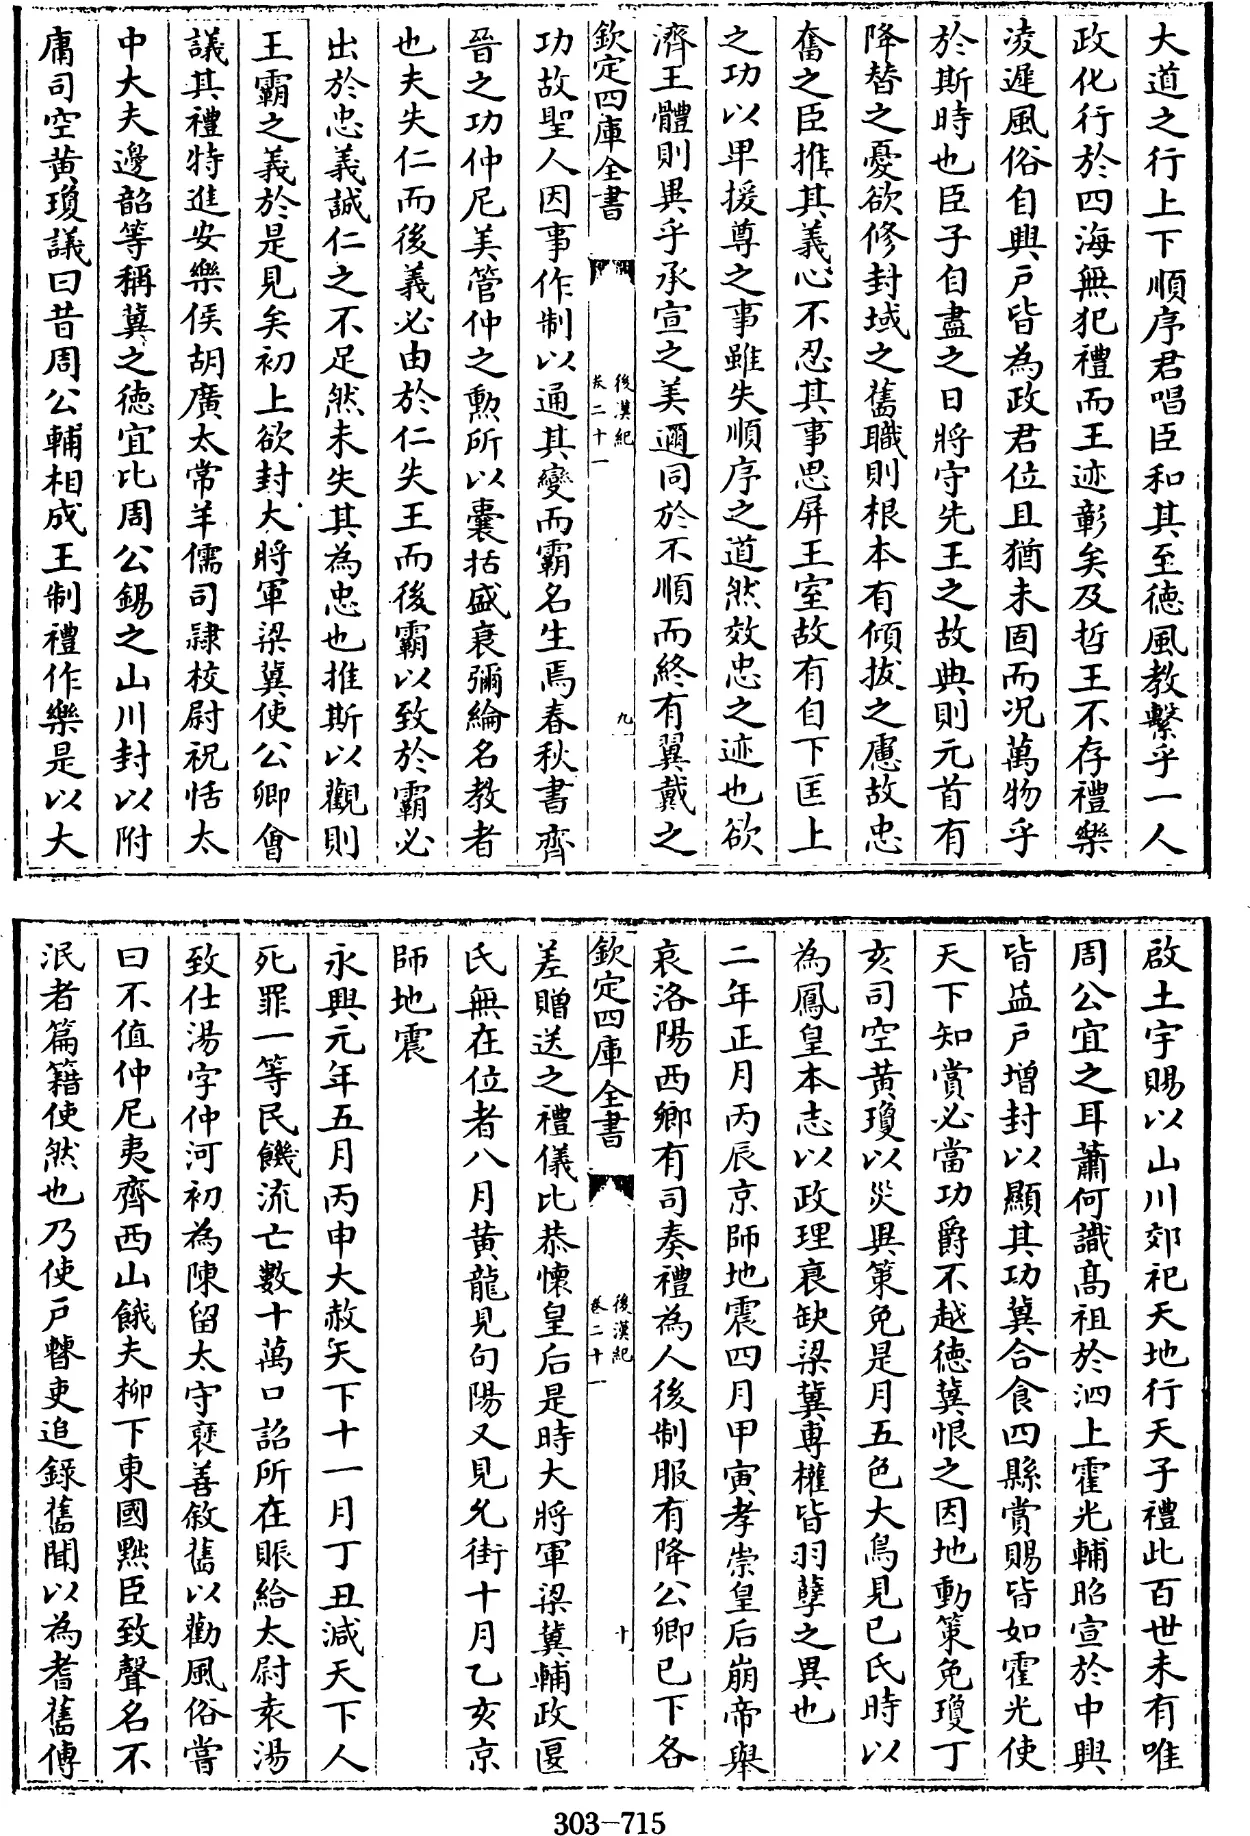 大道之行上下順序君唱臣和其至徳風教繫乎一人
政化行於四海無犯禮而王迹彰矣及哲王不存禮樂
凌遲風俗自興戸皆為政君位且猶未固而況萬物乎
於斯時也臣子自盡之日將守先王之故典則元首有
降替之憂欲修封域之舊職則根本有傾拔之慮故忠
奮之臣推其義心不忍其事思屏王室故有自下匡上
之功以卑援尊之事雖失順序之道然效忠之迹也欲
濟王體則異乎承宣之美適同於不順而終有翼戴之
欽定四庫全書
後漢紀
卷二十一
九
功故聖人因事作制以通其變而霸名生焉春秋書齊
晉之功仲尼美管仲之勲所以囊括盛衰彌綸名教者
也夫失仁而後義必由於仁失王而後霸以致於霸必
出於忠義誠仁之不足然未失其為忠也推斯以觀則
王霸之義於是見矣初上欲封大將軍梁冀使公卿會
議其禮特進安樂侯胡廣太常羊儒司隷校尉祝恬太
中大夫邊韶等稱冀之徳宜比周公錫之山川封以附
庸司空黄瓊議曰昔周公輔相成王制禮作樂是以大
啟土宇賜以山川郊祀天地行天子禮此百世未有唯
周公宜之耳蕭何識髙祖於泗上霍光輔昭宣於中興
皆益戸增封以顯其功冀合食四縣賞賜皆如霍光使
天下知賞必當功爵不越徳冀恨之因地動策免瓊丁
亥司空黄瓊以災異策免是月五色大鳥見已氏時以
為鳳皇本志以政理衰缺梁冀專權皆羽孽之異也
二年正月丙辰京師地震四月甲寅孝崇皇后崩帝舉
哀洛陽西鄉有司奏禮為人後制服有降公卿已下各
欽定四庫全書
後漢紀
卷二十一
十
差贈送之禮儀比恭懷皇后是時大將軍梁冀輔政匽
氏無在位者八月黄龍見句陽又見允街十月乙亥京
師地震
永興元年五月丙申大赦天下十一月丁丑減天下人
死罪一等民饑流亡數十萬口詔所在賑給太尉袁湯
致仕湯字仲河初為陳留太守褒善敘舊以勸風俗嘗
曰不值仲尼夷齊西山餓夫柳下東國黜臣致聲名不
泯者篇籍使然也乃使戸曹吏追錄舊聞以為耆舊傳
303-715